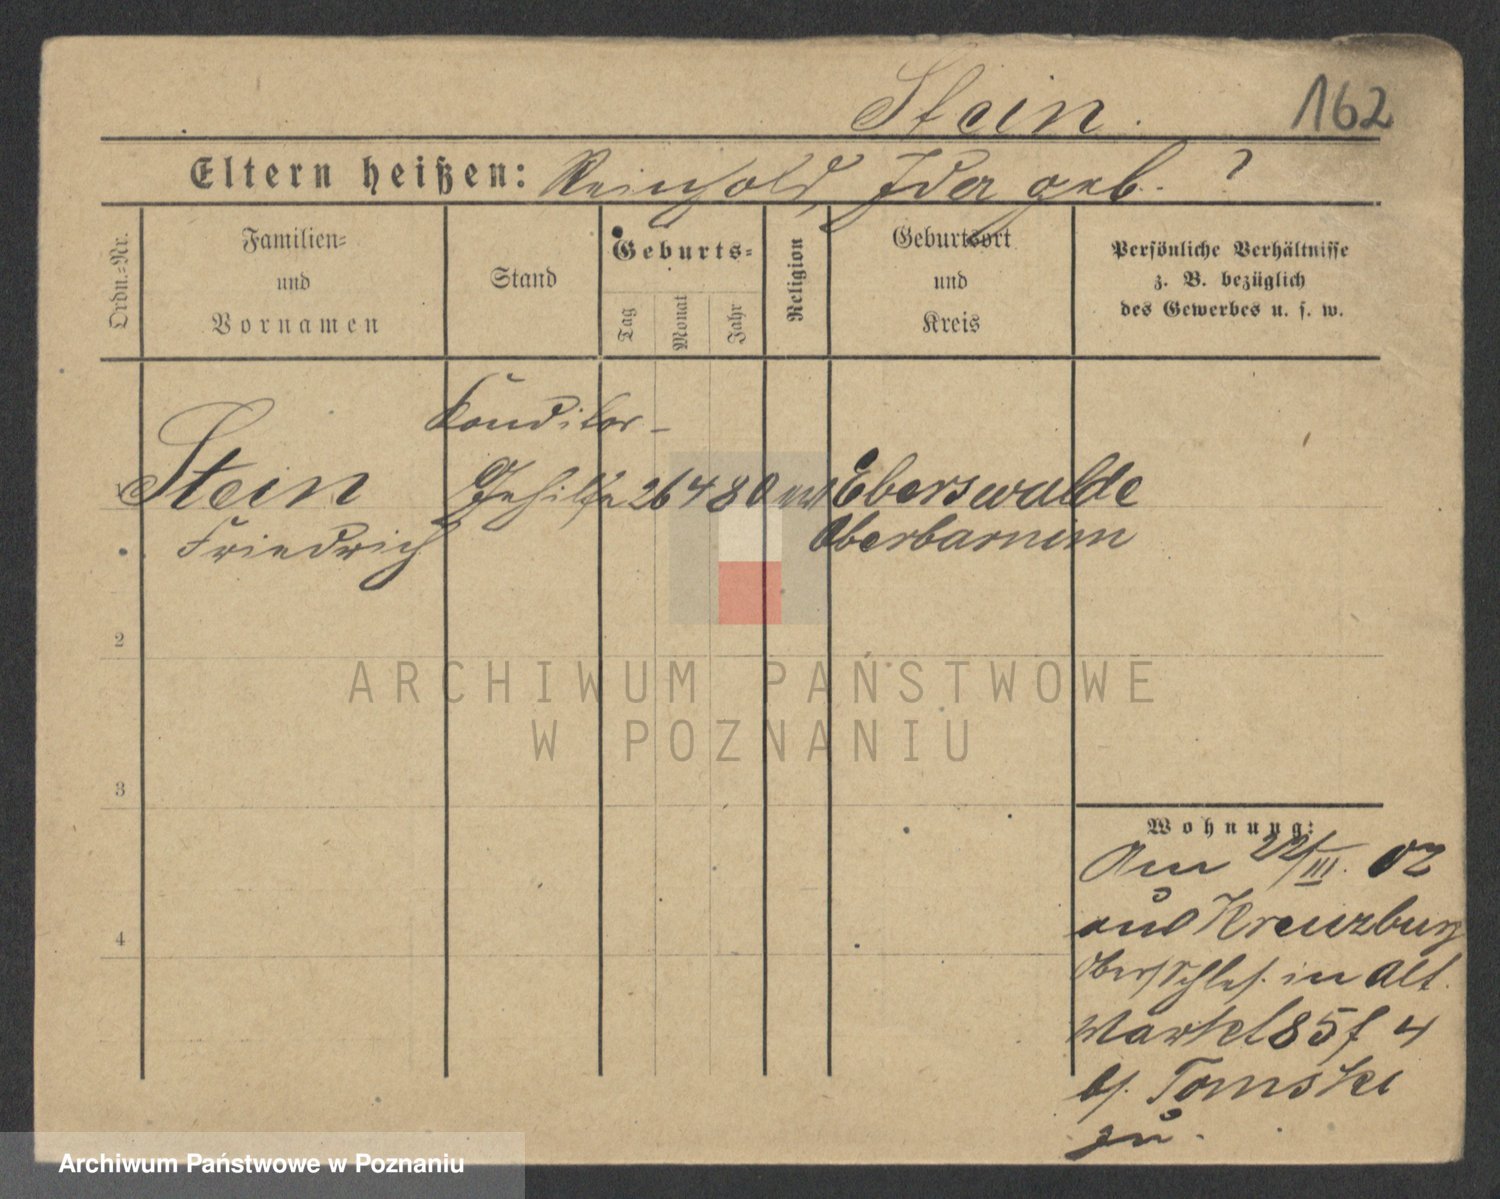 Stein. 162
Eltern heißen: Reinhold, Ida geb. ?
Ordn.-Nr.
Familien-
und
Vornamen
Stand
Geburts-
Tag
Monat
Jahr
Religion
Geburtsort
und
Kreis
Persönliche Verhältnisse
z. B. bezüglich
des Gewerbes u. s. w.
Konditor-
Stein Gehilfe 26 4 80 Eberswalde
Friedrich Oberbarnim
2
3
4
Wohnung:
Am 22/III. 02
aus Kreuzburg
Ober/Schles. in Alt.
Markt 85 4
b/. Tomski
zu.
ARCHIWUM PAŃSTWOWE
W POZNANIU
Archiwum Państwowe w Poznaniu